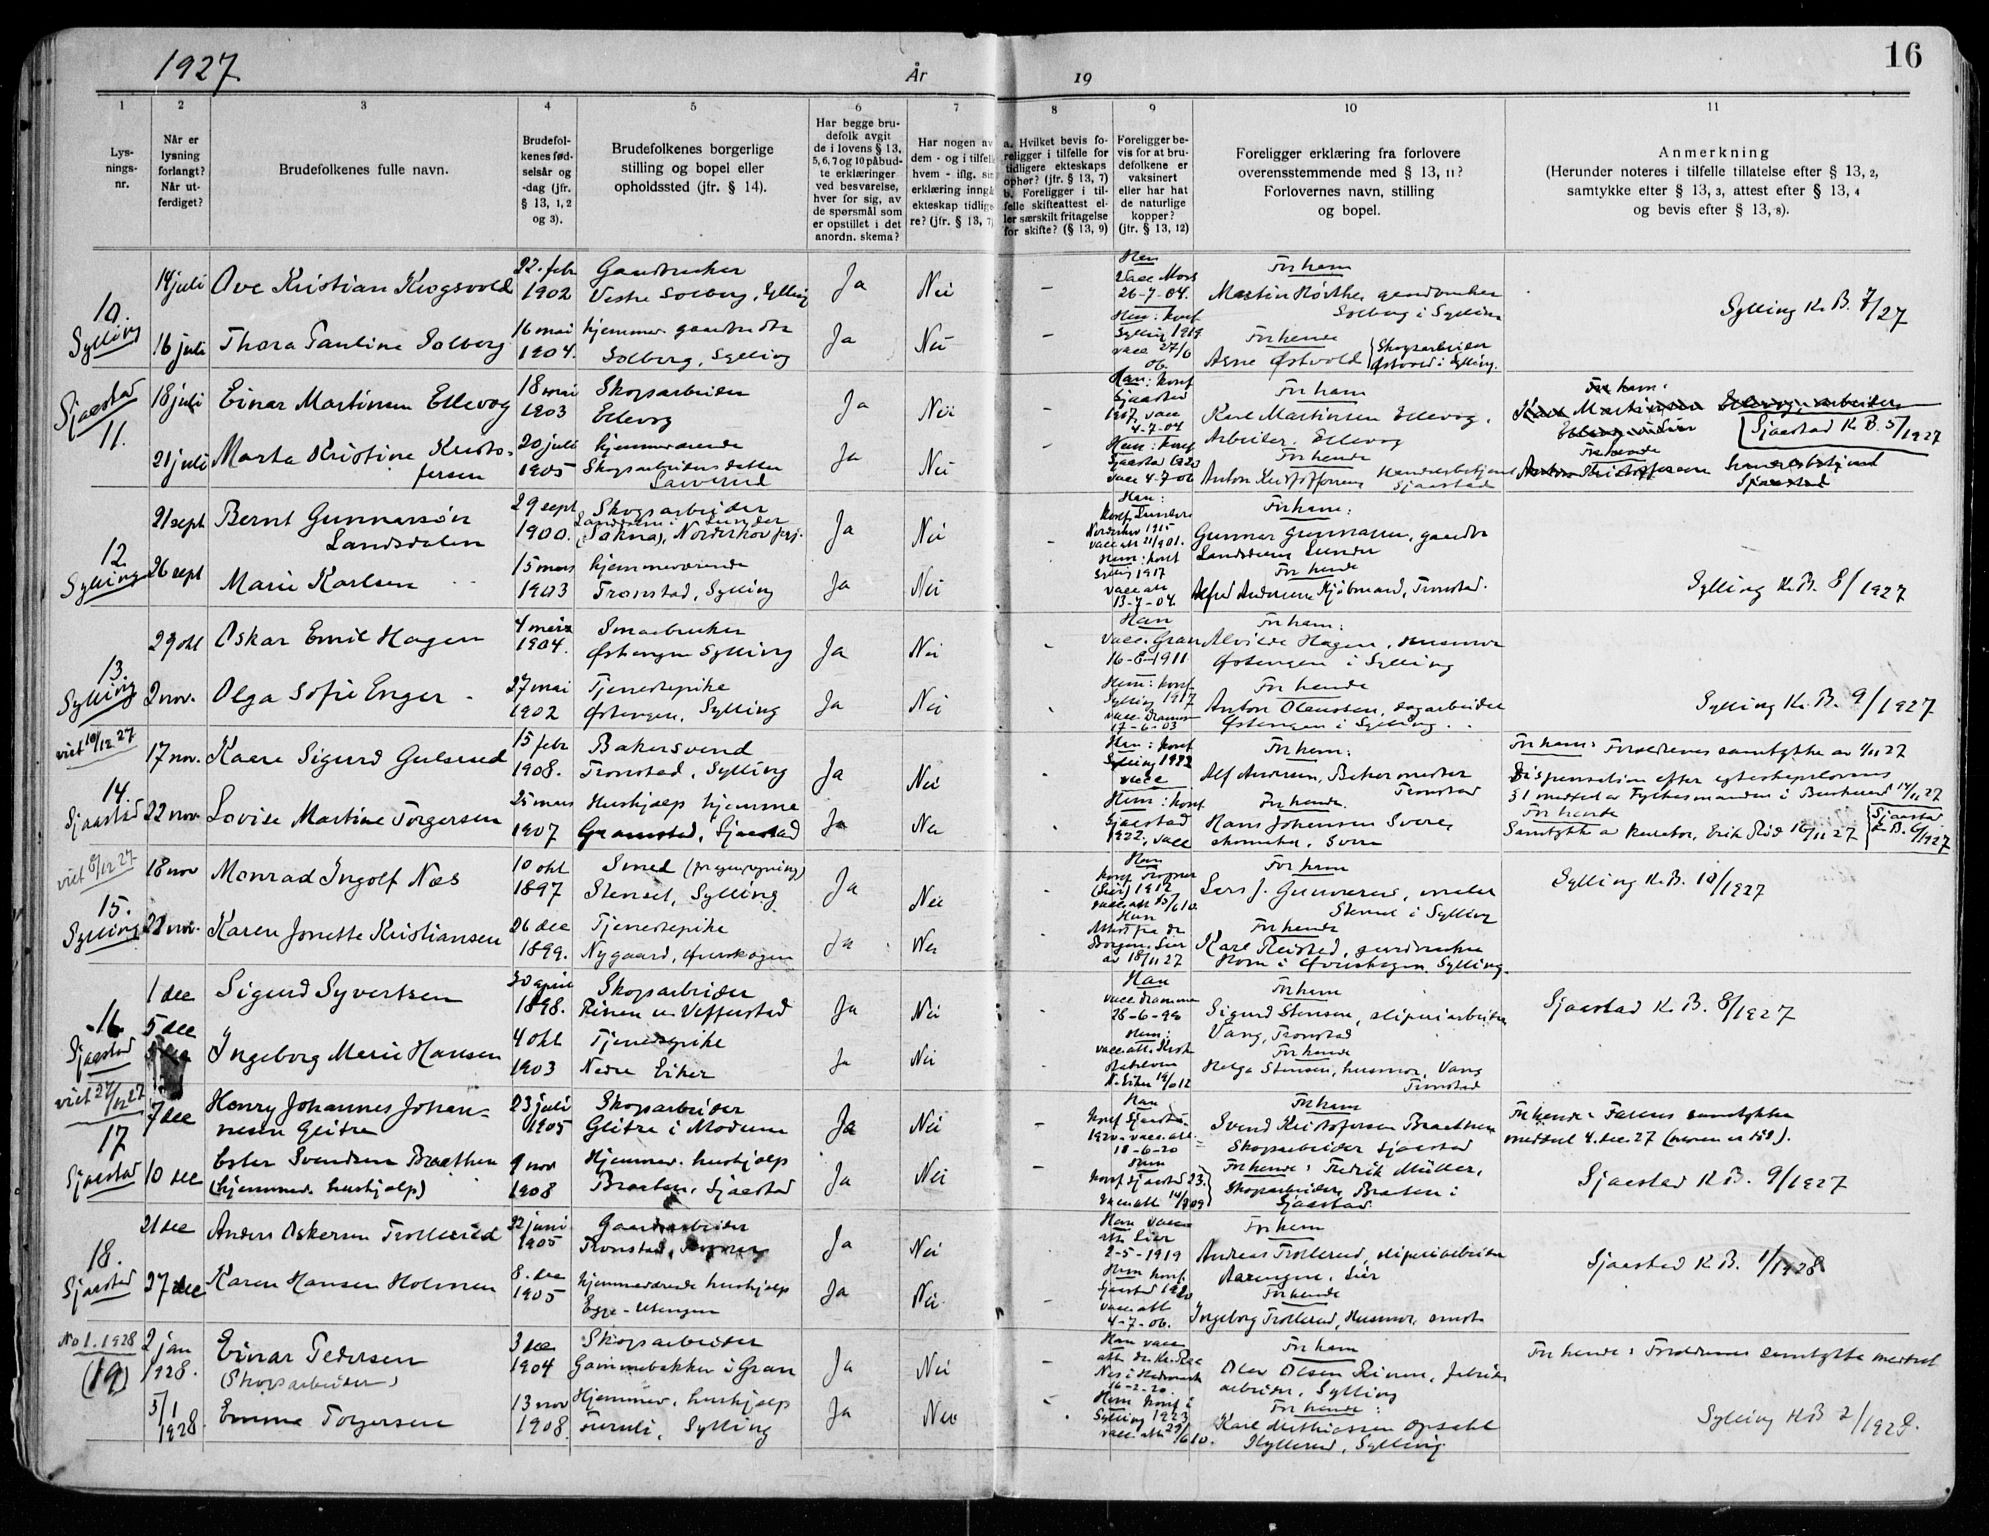 1927
År
19
16
1
2
3
4
5
6
7
8
9
10
11
Lys-
nings-
nr.
Når er
lysning
forlangt?
Når ut-
ferdiget?
Brudefolkenes fulle navn.
Brudefol-
kenes fød-
selsår og
-dag (jfr.
§ 13, 1, 2
og 3).
Brudefolkenes borgerlige
stilling og bopel eller
opholdssted (jfr. § 14).
Har begge bru-
defolk avgit
de i lovens § 13,
5, 6, 7 og 10 påbud-
te erklæringer
ved besvarelse,
hver for sig, av
de spørsmål som
er opstillet i det
anordn. skema?
Har nogen av
dem - og i tilfelle
hvem - iflg. sin
erklæring inngå
ekteskap tidlige
re? (jfr. § 13, 7)
a. Hvilket bevis fo-
religger i tilfelle for
tidligere ekteskaps
ophør? (jfr. § 13, 7)
b. Foreligger i til-
felle skifteattest el-
ler særskilt fritagelse
for skifte? (§ 13, 9)
Foreligger be-
vis for at bru-
defolkene er
vaksinert
eller har hat
de naturlige
kopper?
(jfr. § 13, 12)
Foreligger erklæring fra forlovere
overensstemmende med § 13, 11?
Forlovernes navn, stilling
og bopel.
Anmerkning
(Herunder noteres i tilfelle tillatelse efter § 13, 2,
samtykke efter § 13, 3, attest efter § 13, 4
og bevis efter § 13, 8).
10.
Sylling
14 juli Ove Kristian Krogsvold
22. febr
1902
Gaardbruker
Vestre Solberg, Sylling
Ja Nei -
26-7-04.
For ham
Solberg i Sylling
Sylling K. B. 7/27
16 juli Thora Pauline Solberg
16 mai
1904.
Solberg, Sylling
Ja Nei -
Sylling 1919
vacc 27/6
06.
For hende
Arne Østvold Skogsarbeider
Østvold i Sylling.
Sjaastad
11.
18 juli Einar Martinsen Ellevog
18 mai
1903
Skogsarbeider
Ellevog
Ja Nei -
Han: konf
Sjaastad
4-7-04
For ham
Karl Martinsen Ellevog,
Arbeider. Ellevog
For ham:
Sjaastad K. B. 5/1927
21 juli Marta Kristine Kristo-
fersen
20 juli
1905
hjemmeværende
Skogsarbeiders datter
Ja Nei
Hun: konf
Sjaastad 1920
vacc 4-7-06
For hende
Anton Kristoffersen
Sjaastad
For hende
Sjaastad
12.
Sylling
21 sept Bernt Gunnarsøn
Landsdalen
29 sept
1900.
Skogsarbeider
(Sokna), Norderhov
Ja Nei
Han:
Norderhov 1915
For ham:
Gunnar Gunnarsen, gaardbr
26 sept Marie Karlsen
15 mars
1903
hjemmeværende
Tronstad, Sylling
Ja Nei
Hun: konf
Sylling 1917
vacc att
13-7-04
For hende
Alfred Andersen Kjøbmand, Tronstad.
Sylling K. B. 8/1927
13.
Sylling
29 okt Oskar Emil Hagen
4 mars
1904.
Smaabruker
Østengen Sylling
Ja Nei -
Han
vacc. Gran
16-8-1911
For ham:
Alvilde Hagen, Husmor
Østengen i Sylling
2 nov. Olga Sofie Enger
27 mai
1902
Tjenestepike
Østengen, Sylling
Ja Nei
Hun: konf.
Sylling 1917
17-6-03
For hende
Anton Olausten, sagarbeider
Østengen i Sylling.
Sylling K. B. 9/1927
viet 10/12 27
14.
Sjaastad
17 nov. Kaare Sigurd Gulsrud
15 febr
1908.
Bakersvend
Tronstad, Sylling
Ja Nei
Sylling 1922
vacc
For ham:
Alf Andersen, Bakermester
Tronstad
For ham: Forældrenes samtykke av 4/11 27
Dispensation efter egteskapslovens
§ 1 meddelt av Fylkesmanden i Buskerud 14/11 27
22 nov Lovise Martine Torgersen
25 mars
1907
Hushjælp hjemme
Sjaastad
Ja Nei
Hun: konf
Sjaastad
1922, vacc
For hende.
Hans Johansen Svere,
For hende
Samtykke av kurator, Erik Stød 16/11 27
Sjaastad
K. B. 6/1927
viet 8/12 27
15.
Sylling
18 nov Monrad Ingolf Næs
10 okt
1897
Smed
Stenset, Sylling
Ja Nei
Han
(Lier) 1912
For ham
Lars J. Gunnerud, maler
Stenset i Sylling
Sylling K. B. 10/1927
22 nov. Karen Jonette Kristiansen
26 dec
1899.
Tjenestepike
Nygaard, Øverskogen
Ja Nei
av 18/11 27
For hende
Karl Reistad, gardbruker
Horn i Øverskogen, Sylling.
16
Sjaastad
1 dec
5 dec
Sigurd Syvertsen
30 april
1898.
Skogsarbeider
Ja Nei
Han
vacc. Drammen
28-6-99
For ham
Sigurd Stensen, sliperiarbeider
Vang, Tronstad
Sjaastad K. B. 8/1927
Ingeborg Marie Hansen
4 okt
1903
Tjenestepike
Nedre Eiker
Ja Nei
Hun:
N. Eiker
For hende
Helga Stensen, husmor, Vang
Tronstad
viet 27/12 27
17
Sjaastad
7 dec Henry Johannes Johan-
nesen Glitre
23 juli
1905
Skogsarbeider
Glitre i Modum
Ja Nei -
Han
konf Sjaastad
1920 - vacc. att.
18-6-20
For ham
Svend Kristofersen Braathen
Skogsarbeider Sjaastad
For hende: Farens samtykke
meddelt 4. dec. 27 (moren er død).
10 dec Ester Svendsen Braathen
(hjemmev. hushjælp)
9 nov
1908
Hjemmev. hushjælp
Braaten, Sjaastad
Ja Nei -
Hun
konf Sjaastad 23.
For hende: Fredrik Müller,
Skogsarbeider Braaten i
Sjaastad.
Sjaastad K B. 9/1927
18.
Sjaastad
21 dec Anders Oskarsen Trollerud
22 juni
1905
Gaardarbeider
Tronstad,
Ja Nei
Han vacc
att Lier
2-5-1919
For ham
Andreas Trollerud, sliperiarbeider
Lier
Sjaastad K. B. 1/1928
27 dec Karen Hansen Holmen
8. dec
1905
hjemmeværende hushjælp
Egge - Utengen
Ja Nei
Hun konf.
Sjaastad 1920
vacc. att
4-7-06.
For hende
Ingeborg Trollerud, Husmor,
No 1. 1928
(19)
2 jan
1928.
Einar Pedersen
(Skogsarbeider)
3 dec
1904
Skogsarbeider
Gammebakken i Gran
Ja Nei -
Han vacc
16-2-20.
For ham
Olav Olsen Rinen, fabrik-
arbeider, Sylling
For hende: Forældrenes samtykke meddelt
5/1
1928
Emma Torgersen
13 nov
1908.
Hjemmev. hushjælp
Furuli, Sylling
Ja Nei
Hun konf i
Sylling 1923
vacc. att 29/6 10.
For hende:
Karl Mathiassen Opsahl
Hyllerud, Sylling
Sylling K B 2/1928.